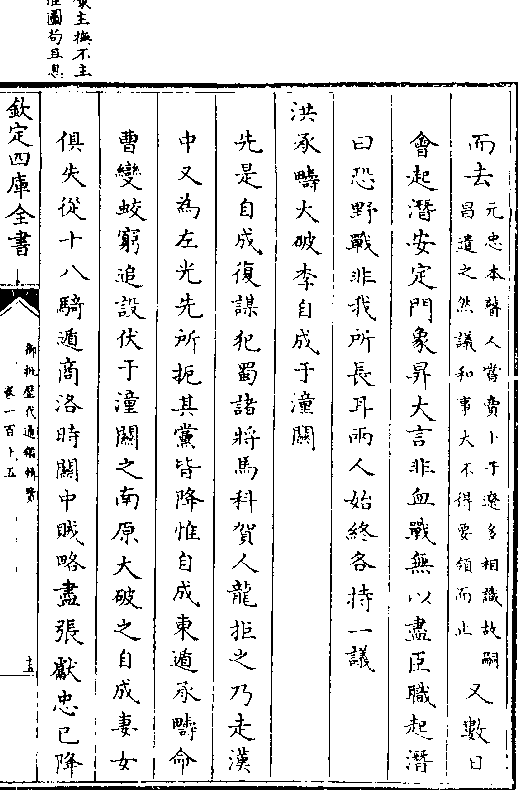 而去元忠本瞽人嘗賣卜于遼多相識故嗣
昌遣之然議和事大不得要領而止又數日
會起潛安定門象昇大言非血戰無以盡臣職起潛
曰恐野戰非我所長耳兩人始終各持一議
洪承疇大破李自成于潼關
先是自成復謀犯蜀諸將馬科賀人龍拒之乃走漢
中又為左光先所扼其黨皆降惟自成東遁承疇命
曹變蛟窮追設伏于潼關之南原大破之自成妻女
俱失從十八騎遁商洛時關中賊略盡張獻忠已降
欽定四庫全書
御批歷代通鑑輯覽
卷一百十五
主撫不主
圖苟且